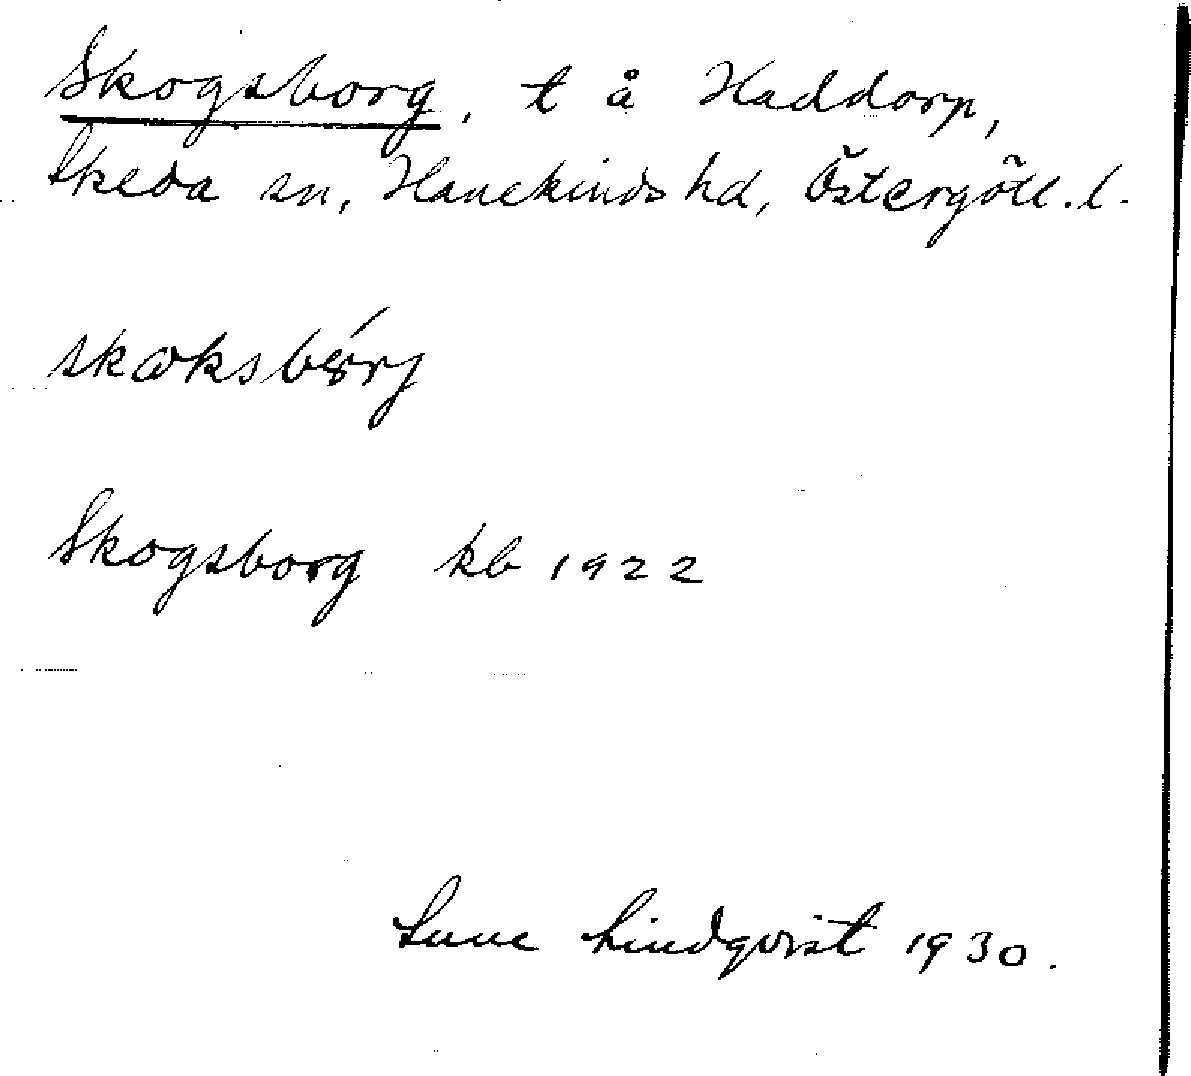 Skogsborg, t å Haddorp,
Skeda sn, Hanekinds hd, Östergötl. l.
Skogsborg kb 1922
Sune Lindqvist 1930.